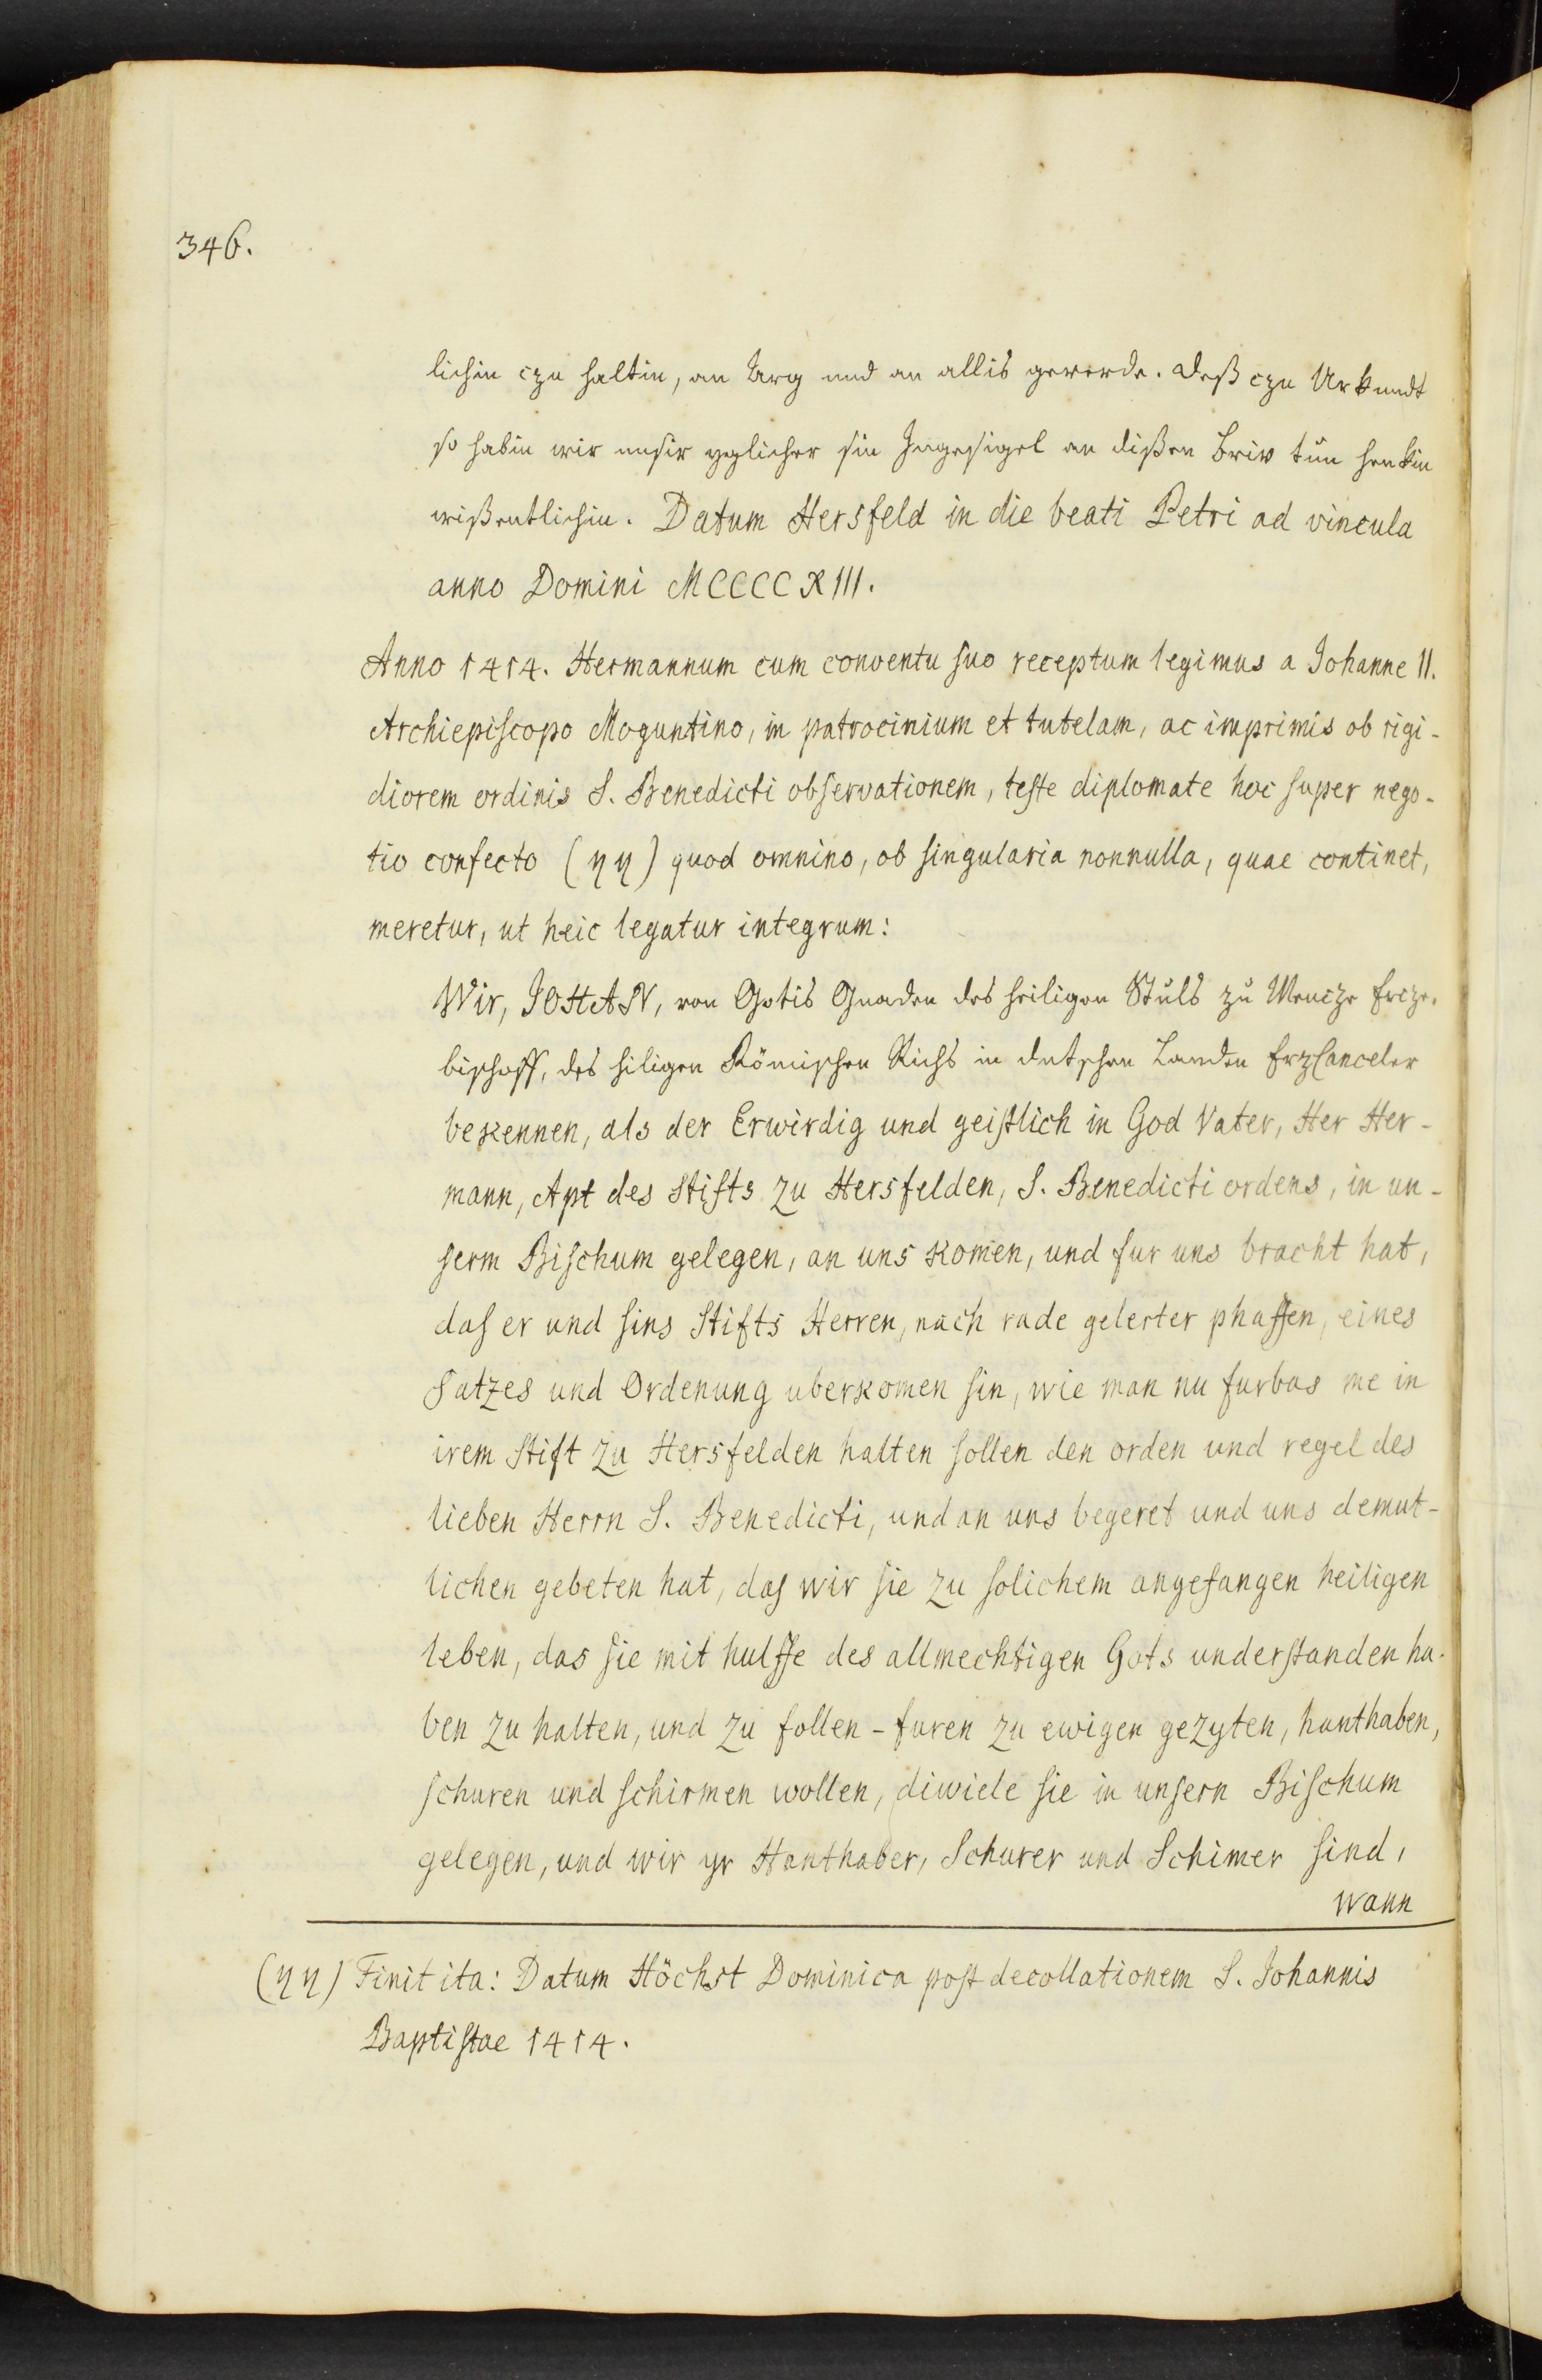 346.
lichin czu haltin, an Arg und an allis geverde. Deß czu Urkundt
so habin wir unsir yglicher sin Ingesigel an dißen Briv tun henkin
wißentlichin. Datum Hersfeld in die beati Petri ad vincula
anno Domini MCCCCXIII.
Anno 1414. Hermannum cum conventu suo receptum legimus a Johanne II.
Archiepiscopo Moguntino, in patrocinium et tutelam, ac imprimis ob rigi-
diorem ordinis S. Benedicti observationem, teste diplomate hoc super nego-
tio confecto (ηη) quod omnino, ob singularia nonnulla, quae continet,
meretur, ut heic legatur integrum:
Wir, JOHAN, von Gotis Gnaden des heiligen Stuls zu Mencze Ercze-
bischoff, des hiligen Römischen Richs in dutschen Landen ErzCanceler
bekennen, als der Erwirdig und geistlich in God Vater, Her Her-
mann, Apt des Stifts zu Hersfelden, S. Benedicti ordens, in un-
serm Bischum gelegen, an uns komen, und fur uns bracht hat,
das er und sins Stifts Herren, nach rade gelerter phaffen, eines
Satzes und Ordenung uberkomen sin, wie man nu furbas me in
irem Stift zu Hersfelden halten sollen den orden und regel des
lieben Herrn S. Benedicti, und an uns begeret und uns demut-
lichen gebeten hat, das wir sie zu solichem angefangen heiligen
leben, das sie mit hulffe des allmechtigen Gots understanden ha-
ben zu halten, und zu follen-furen zu ewigen gezyten, hanthaben,
schuren und schirmen wollen, diwiele sie in unsern Bischum
gelegen, und wir yr Hanthaber, Schurer und Schimer sind,
wann
(ηη) Finit ita: Datum Höchst Dominica post decollationem S. Johannis
Baptistae 1414.